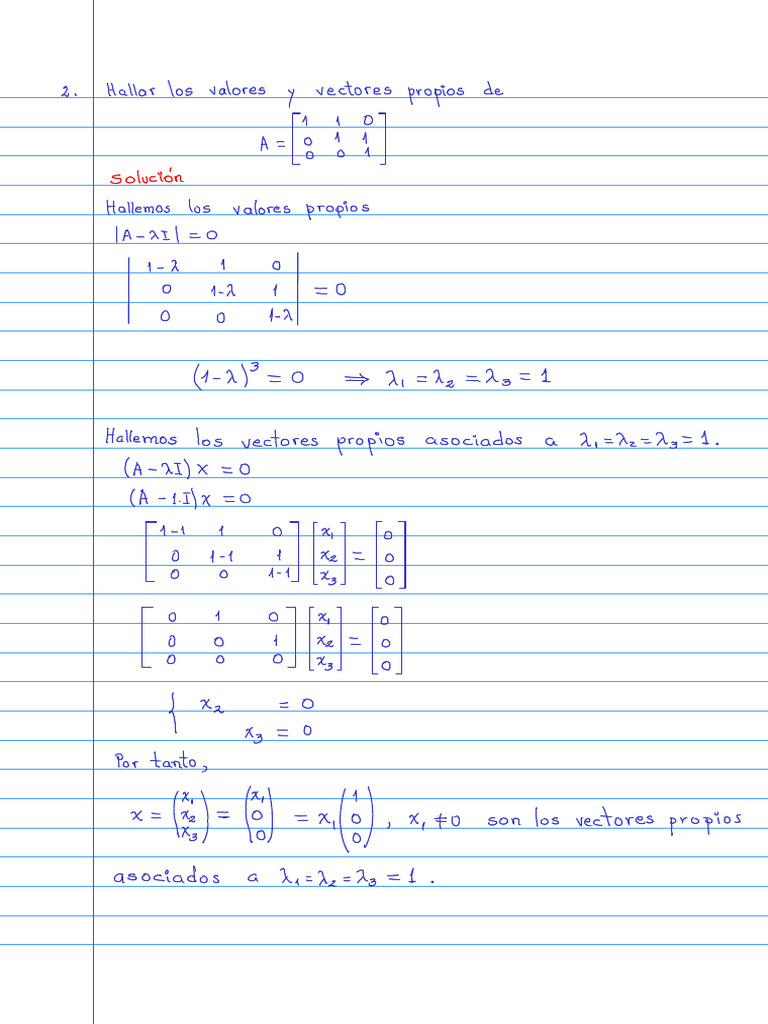 2. Hallar los valores y vectores propios de
A = [1 1 0
0 1 1
0 0 1]
Solución
Hallemos los valores propios
|A-λI| = 0
|1-λ 1 0
0 1-λ 1| = 0
0 0 1-λ|
(1-λ)³ = 0 ⇒ λ₁ = λ₂ = λ₃ = 1
Hallemos los vectores propios asociados a λ₁=λ₂=λ₃=1.
(A-λI)x = 0
(A-1.I)x = 0
[1-1 1 0] [x₁] [0]
[0 1-1 1] [x₂] = [0]
[0 0 1-1] [x₃] [0]
[0 1 0] [x₁] [0]
[0 0 1] [x₂] = [0]
[0 0 0] [x₃] [0]
{ x₂ = 0
x₃ = 0
Por tanto,
x = (x₁ x₂ x₃) = (x₁ 0 0) = x₁ (1 0 0), x₁ ≠ 0 son los vectores propios
asociados a λ₁ = λ₂ = λ₃ = 1.